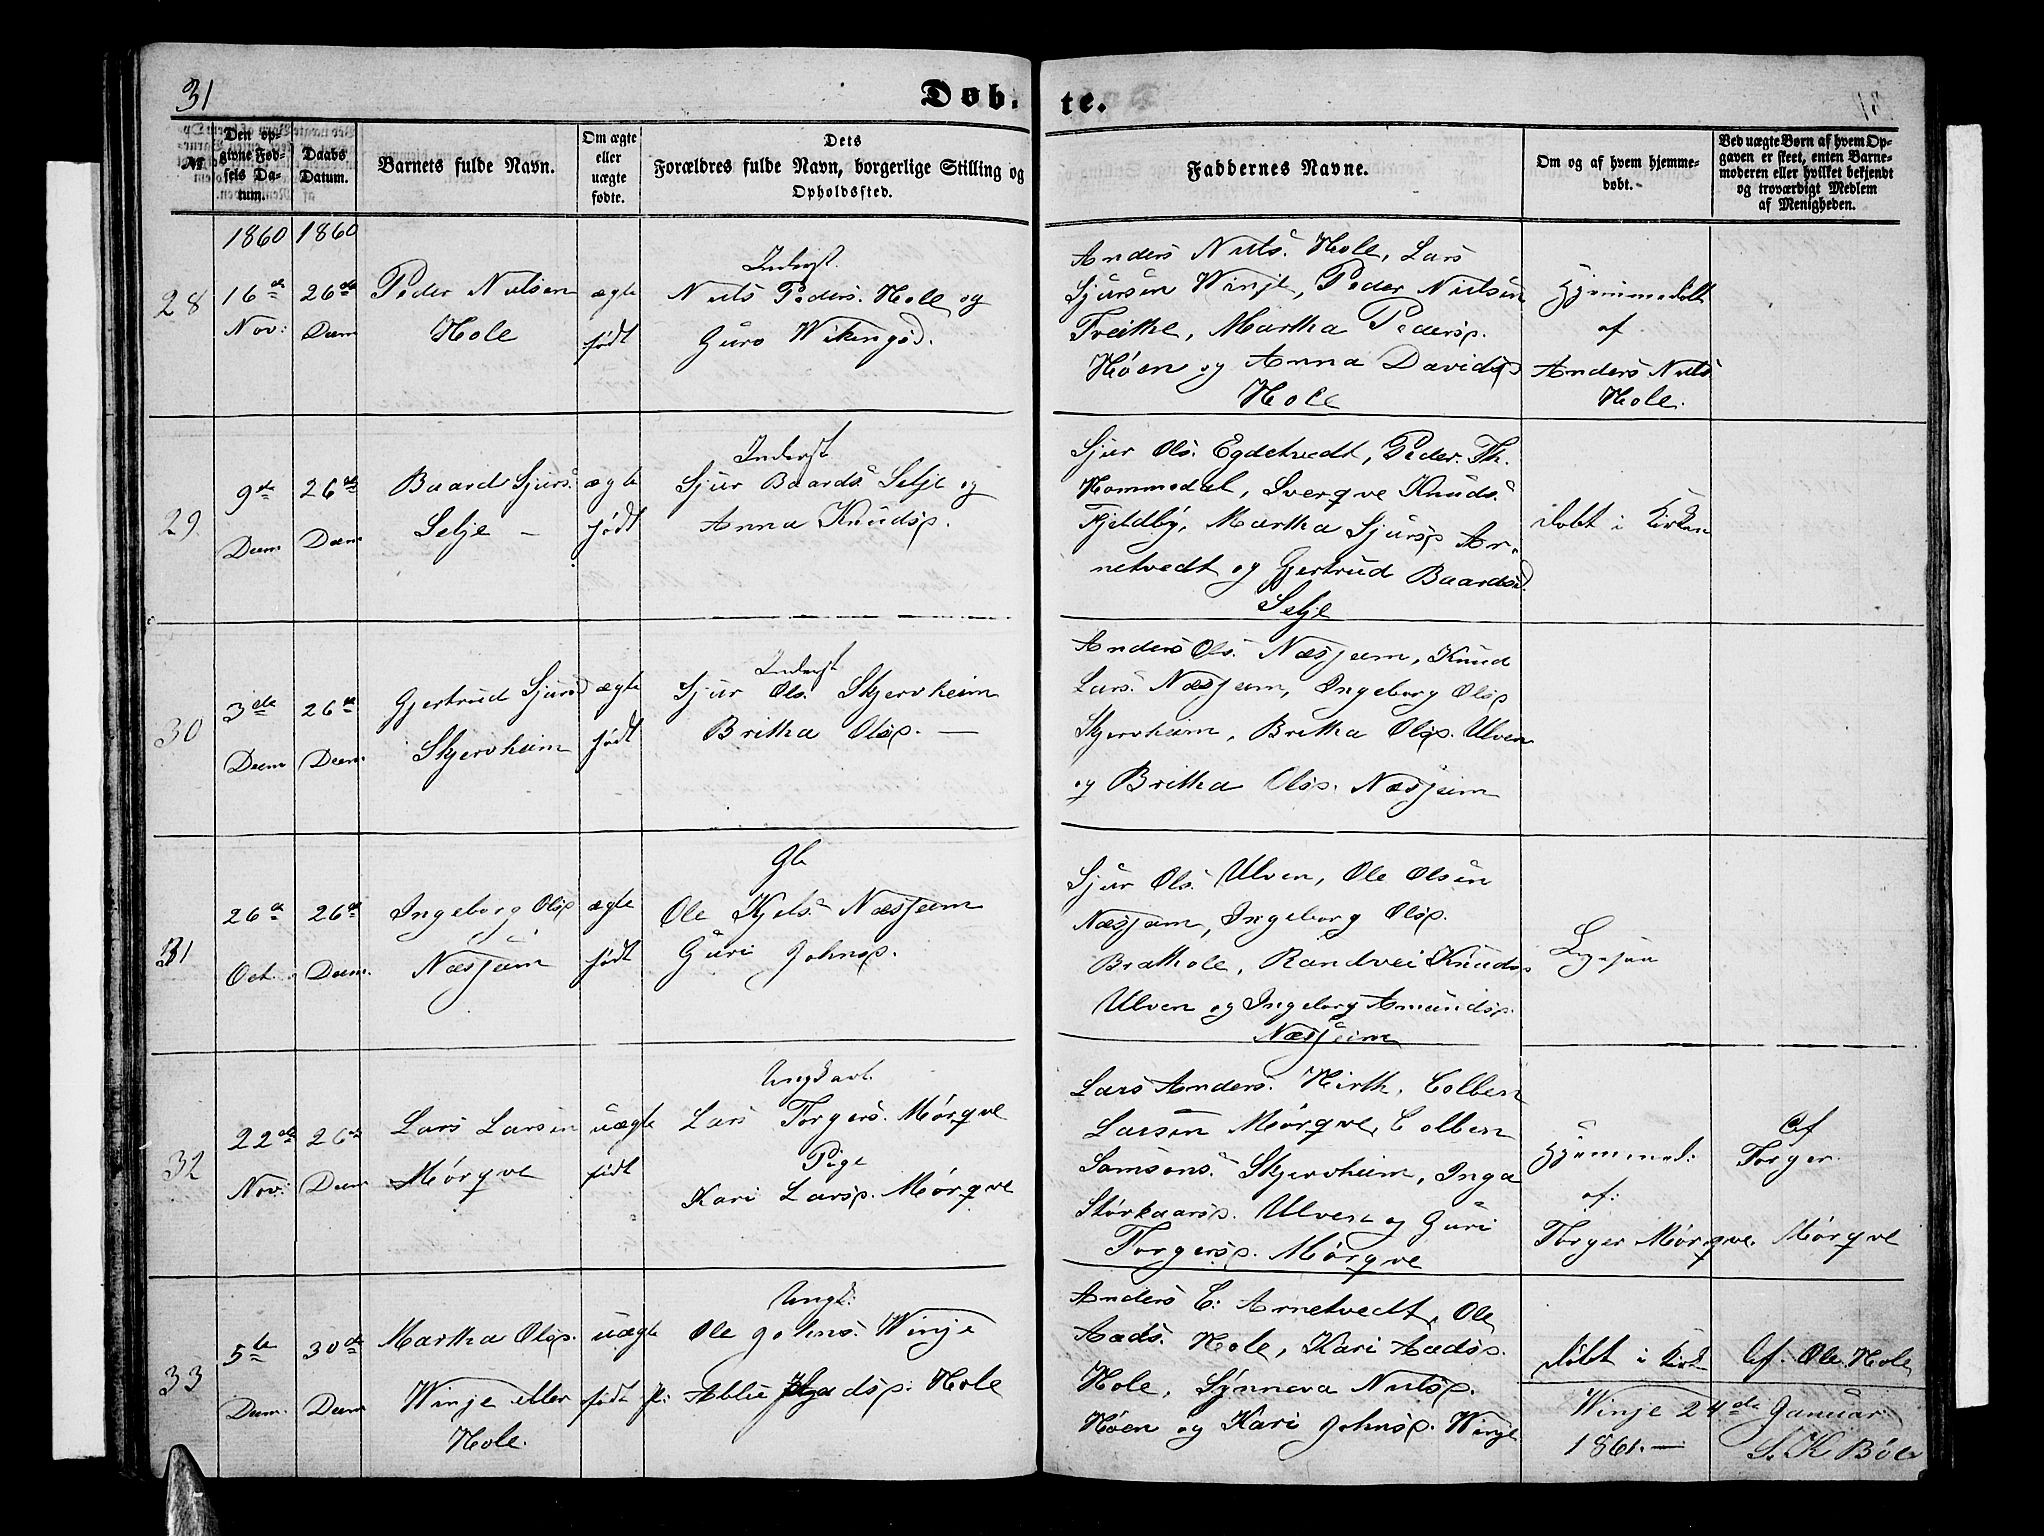 31
Døb. te.
№
Den op-
givne Fød-
sels Da-
tum.
Daabs
Datum.
Barnets fulde Navn.
Om ægte
eller
uægte
fødte.
Dets
Forældres fulde Navn, borgerlige Stilling og
Opholdssted.
Faddernes Navne.
Om og af hvem hjemme-
døbt.
Ved uægte Børn af hvem Op-
gaven er skeet, enten Barne-
moderen eller hvilket bekjendt
og troværdigt Medlem
af Menigheden.
1860 1860
28
16de
Nov:
26de
Dcem
Peder Nilsen
Hole
ægte
født
Inderst.
Nils Peders. Hole og
Guro Wikingsd.
Anders Nils. Hole, Lars
Sjursen Winje, Peder Nilsen
Treithe, Martha Pedersp.
Høen og Anna Davidsp
Hole
Hjemmedøbt
af
Anders Nils
Hole.
29.
9de
Dcem
26de
Dcem
Baard Sjurs.
Selje –
ægte
født
Inderst
Sjur Baards. Selje og
Anna Knudsp.
Sjur Ols. Egdetvedt, Peder Th.
Hommedal, Sverqve Knuds.
Fjeldby, Martha Sjursp Ar-
netvedt og Gjertrud Baardsd.
Selje
døbt i Kirken
30
3de
Dcem
26de
Dcem
Gjertrud Sjursd
Skjervheim
ægte
født
Inderst
Sjur Ols. Skjervheim
Britha Olsp. –
Anders Ols. Næsjeim, Knud
Lars. Næsjeim, Ingeborg Olsp
Skjervheim, Britha Olsp. Ulven
og Britha Olsp. Næsjeim
31
26de
Oct.
26de
Dcem.
Ingeborg Olsp
Næsjeim
ægte
født
Ole Kjels. Næsjeim
Guri Johnsp.
Sjur Ols. Ulven, Ole Olsen
Næsjeim, Ingeborg Olsp.
Brathole, Randvei Knuds
Ulven og Ingeborg Amundsp.
Næsjeim
32
22de
Nov:
26de
Dcem
Lars Larsen
Mørqve
uægte
født
Ungkarl.
Lars Torgers. Mørqve
Pige
Kari Larsp. Mørqve
Lars Anders. Hirth, Colben
Larsen Mørqve, Colben
Samsons. Skjervheim, Inga
Størkaarsp. Ulven og Guri
Torgersp. Mørqve
Hjemmed:
af:
Torger Mørqve.
Af
Torger
Mørqve
33
5te
Dcem.
30de
Dcem
Martha Olsp.
Winje eller
Hole.
uægte
født
Ungk:
Ole Johns. Winje
P: Ablie Aadsp. Hole
Anders C: Arnetvedt, Ole
Aads. Hole, Kari Aadsp.
Hole, Synneva Nilsp.
Høen og Kari Johnsp. Winje
døbt i Kirk
Af. Ole Hole
Winje 24de Januar
1861. –
S. K. Bøe